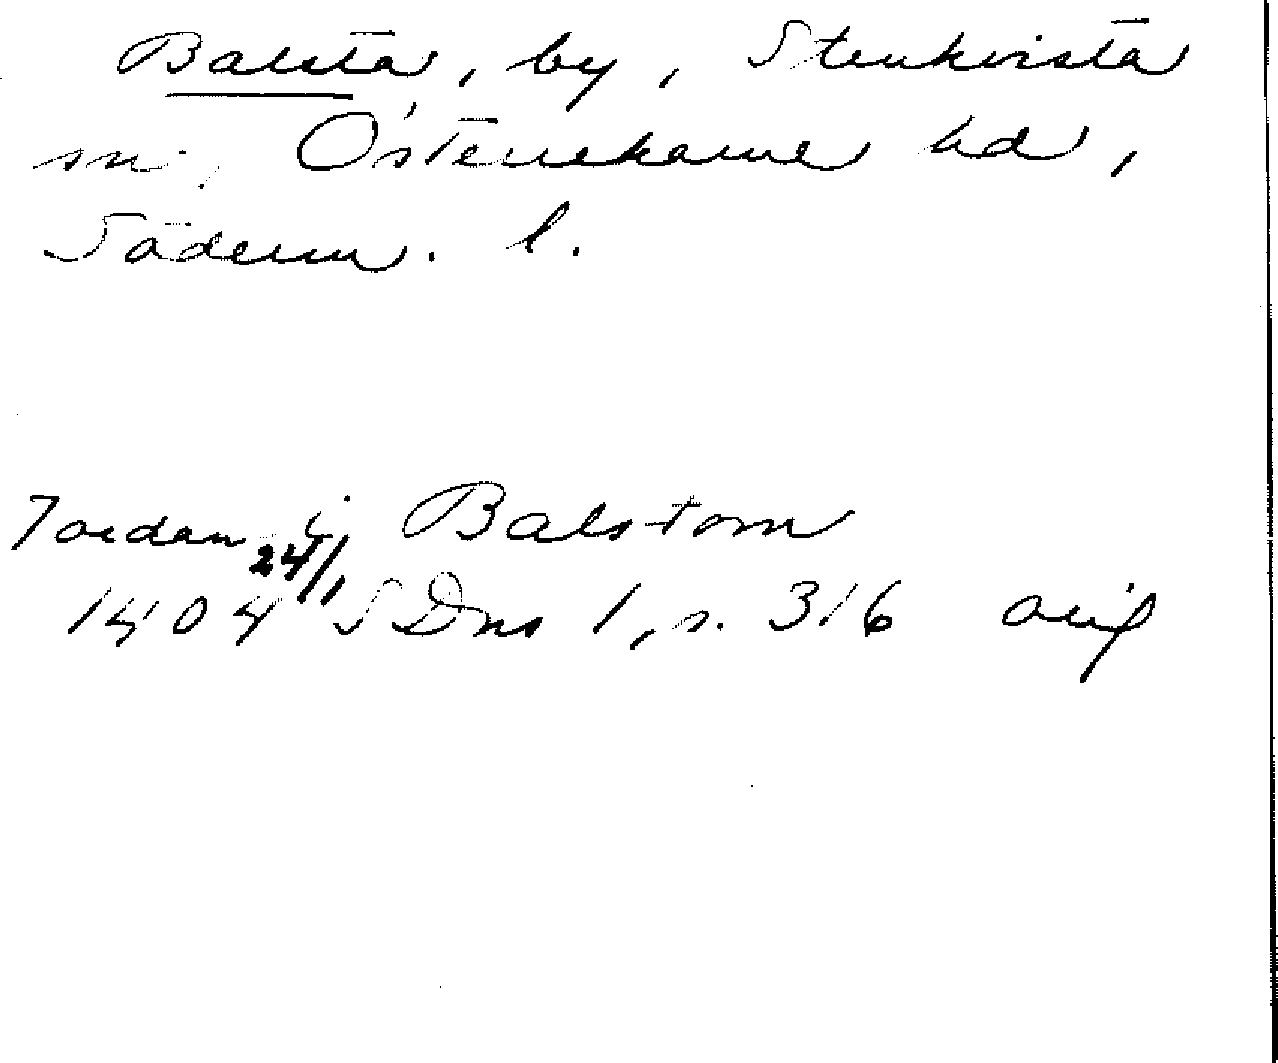 Balsta, by, Stenkvista
sn, Österrekarne hd,
Söderm. l.
Jordan j Balstom
24/1
1404 SDns 1, s. 316 orig